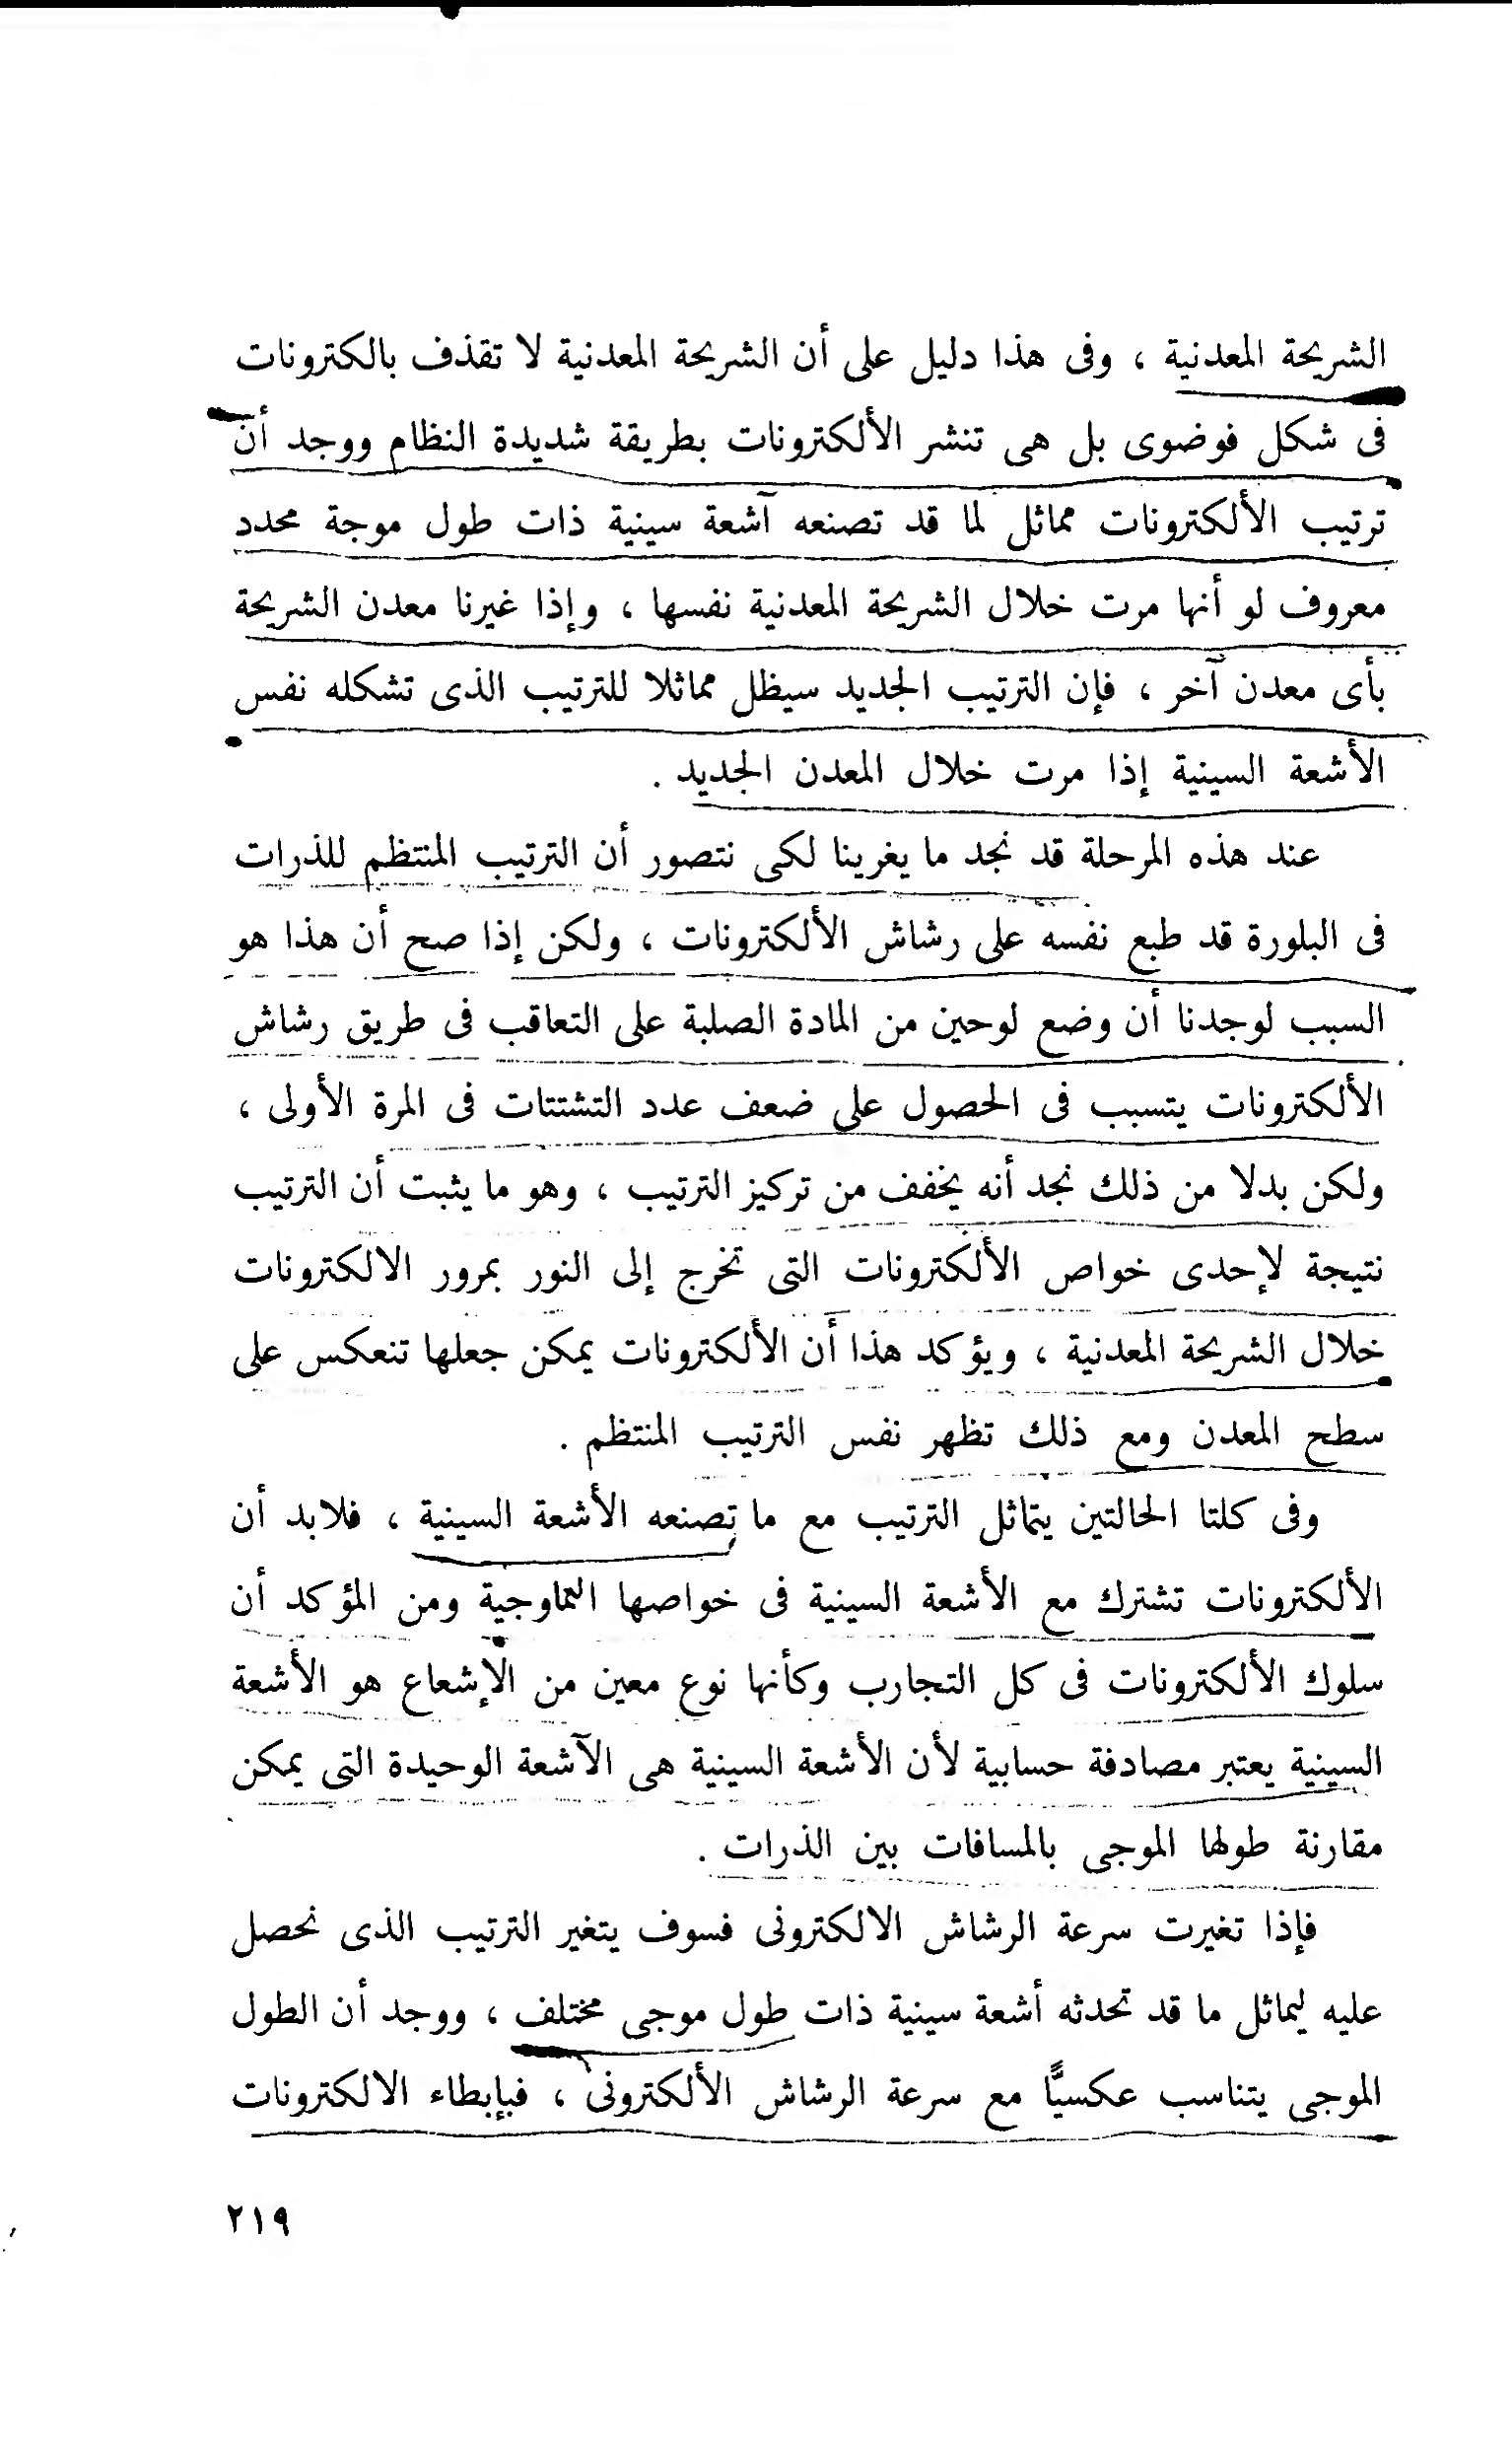 الشريحة المعدنية ، وفى هذا دليل على أن الشريحة المعدنية لا تقذف بالكترونات
فى شكل فوضوى بل هى تنشر الألكترونات بطريقة شديدة النظام ووجد أن
ترتيب الألكترونات مماثل لما قد تصنعه آشعة سينية ذات طول موجة محدد
معروف لو أنها مرت خلال الشريحة المعدنية نفسها ، وإذا غيرنا معدن الشريحة
بأى معدن آخر ، فإن الترتيب الجديد سيظل مماثلا للترتيب الذى تشكله نفس
الأشعة السينية إذا مرت خلال المعدن الجديد .
عند هذه المرحلة قد نجد ما يغرينا لكى نتصور أن الترتيب المنتظم للذرات
فى البلورة قد طبع نفسه على رشاش الألكترونات ، ولكن إذا صح أن هذا هو
السبب لوجدنا أن وضع لوحين من المادة الصلبة على التعاقب فى طريق رشاش
الألكترونات يتسبب فى الحصول على ضعف عدد التشتتات فى المرة الأولى ،
ولكن بدلا من ذلك نجد أنه يخفف من تركيز الترتيب ، وهو ما يثبت أن الترتيب
نتيجة لإحدى خواص الألكترونات التى تخرج إلى النور بمرور الالكترونات
خلال الشريحة المعدنية ، ويؤكد هذا أن الألكترونات يمكن جعلها تنعكس على
سطح المعدن ومع ذلك تظهر نفس الترتيب المنتظم .
وفى كلتا الحالتين يتماثل الترتيب مع ما تصنعه الأشعة السينية ، فلابد أن
الألكترونات تشترك مع الأشعة السينية فى خواصها التماوجية ومن المؤكد أن
سلوك الألكترونات فى كل التجارب وكأنها نوع معين من الإشعاع هو الأشعة
السينية يعتبر مصادفة حسابية لأن الأشعة السينية هى الآشعة الوحيدة التى يمكن
مقارنة طولها الموجى بالمسافات بين الذرات .
فإذا تغيرت سرعة الرشاش الالكترونى فسوف يتغير الترتيب الذى نحصل
عليه ليماثل ما قد تحدثه أشعة سينية ذات طول موجى مختلف ، ووجد أن الطول
الموجى يتناسب عكسيًّا مع سرعة الرشاش الألكترونى ، فبإبطاء الالكترونات
٢١٩